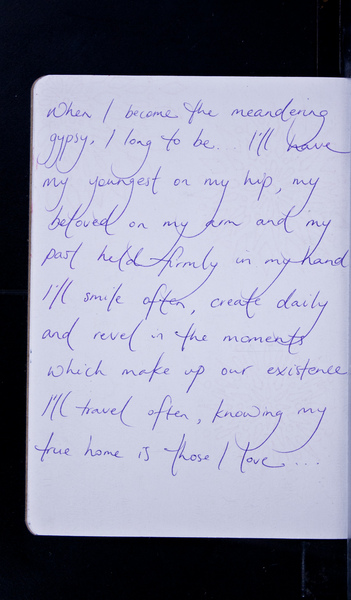 When I become the meandering
gypsy, I long to be. I'll have
my youngest on my hip, my
beloved on my arm and my
past held firmly in my hand
I'll smile often, create daily
and revel in the moments
which make up our existence
I'll travel often, knowing my
true home is those I love....